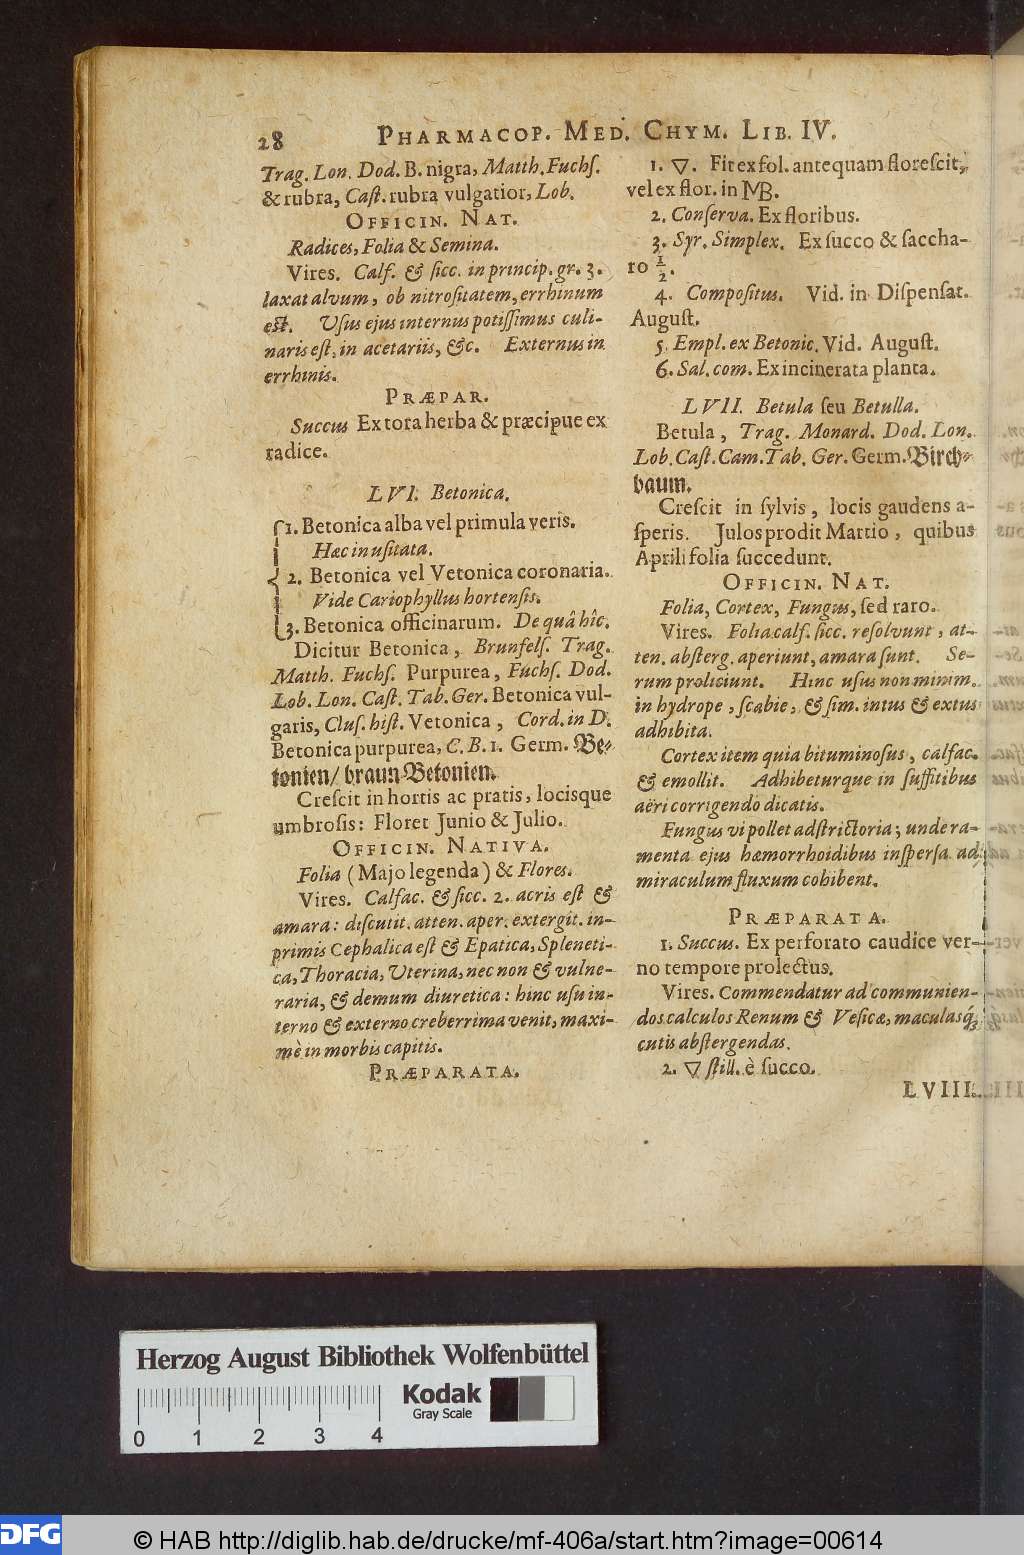 28 PHARMACOP. MED. CHYM. LIB. IV.
Trag. Lon. Dod. B. nigra, Matth. Fuchſ.
& rubra, Caſt. rubra vulgatior, Lob.
OFFICIN. NAT.
Radices, Folia & Semina.
Vires. Calf. & ſicc. in princip. gr. 3.
laxat alvum, ob nitroſitatem, errhinum
eſt. Uſus ejus internus potiſſimus culi-
naris eſt, in acetariis, &c. Externus in
errhinis.
PRÆPAR.
Succus Ex tota herba & præcipue ex
radice.
LVI. Betonica.
1. Betonica alba vel primula veris.
Hæc inuſitata.
2. Betonica vel Vetonica coronaria.
Vide Cariophyllus hortenſis.
3. Betonica officinarum. De quâ hîc.
Dicitur Betonica, Brunfelſ. Trag.
Matth. Fuchſ. Purpurea, Fuchſ. Dod.
Lob. Lon. Caſt. Tab. Ger. Betonica vul-
garis, Cluſ. hiſt. Vetonica, Cord. in D.
Betonica purpurea, C. B. 1. Germ. Be-
tonien/ braun Betonien.
Creſcit in hortis ac pratis, locisque
umbroſis: Floret Junio & Julio.
OFFICIN. NATIVA.
Folia (Majo legenda) & Flores.
Vires. Calfac. & ſicc. 2. acris eſt &
amara: diſcutit. atten. aper. extergit. in-
primis Cephalica eſt & Epatica, Spleneti-
ca, Thoracia, Uterina, nec non & vulne-
raria, & demum diuretica: hinc uſu in-
terno & externo creberrima venit, maxi-
mè in morbis capitis.
PRÆPARATA.
1. ▽. Fit ex fol. antequam floreſcit,
vel ex flor. in MB.
2. Conſerva. Ex floribus.
3. Syr. Simplex. Ex ſucco & ſaccha-
ro ½.
4. Compoſitus. Vid. in Diſpenſat.
Auguſt.
5. Empl. ex Betonic. Vid. Auguſt.
6. Sal. com. Ex incinerata planta.
LVII. Betula ſeu Betulla.
Betula, Trag. Monard. Dod. Lon.
Lob. Caſt. Cam. Tab. Ger. Germ. Birch-
baum.
Creſcit in ſylvis, locis gaudens a-
ſperis. Julos prodit Martio, quibus
Aprili folia ſuccedunt.
OFFICIN. NAT.
Folia, Cortex, Fungus, ſed raro.
Vires. Folia calf. ſicc. reſolvunt, at-
ten. abſterg. aperiunt, amara ſunt. Se-
rum proliciunt. Hinc uſus non minim.
in hydrope, ſcabie, & ſim. intus & extus
adhibita.
Cortex item quia bituminoſus, calfac.
& emollit. Adhibeturque in ſuffitibus
aëri corrigendo dicatis.
Fungus vi pollet adſtrictoria; unde ra-
menta ejus hæmorrhoidibus inſperſa ad
miraculum fluxum cohibent.
PRÆPARATA.
1. Succus. Ex perforato caudice ver-
no tempore prolectus.
Vires. Commendatur ad communien-
dos calculos Renum & Veſicæ, maculasq́;
cutis abſtergendas.
2. ▽ ſtill. è ſucco.
LVIII.
Herzog August Bibliothek Wolfenbüttel
Kodak
Gray Scale
0 1 2 3 4
DFG © HAB http://diglib.hab.de/drucke/mf-406a/start.htm?image=00614